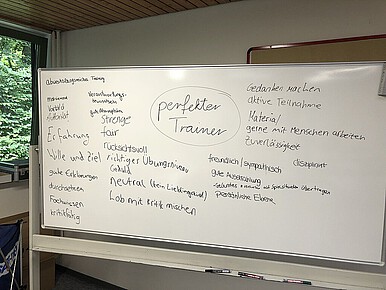 abwechslungsreiches Training
motivierend
Vorbild
Autorität
Erfahrung
Wille und Ziel
gute Erklärungen
durchachten
Fachwissen
kritikfähig
Verantwortungs-
bewusstsein
gute Atmosphäre
Strenge
fair
rücksichtsvoll
richtiger Übungsniveau
Geduld
neutral (kein Lieblingskind)
Lob mit Kritik mischen
perfekter
Trainer
Gedanken machen
aktive Teilnahme
Material
gerne mit Menschen arbeiten
Zuverlässigkeit
freundlich / sympathisch
diszipliniert
gute Ausstrahlung
auf Spielsituation übertragen
persönliche Ebene